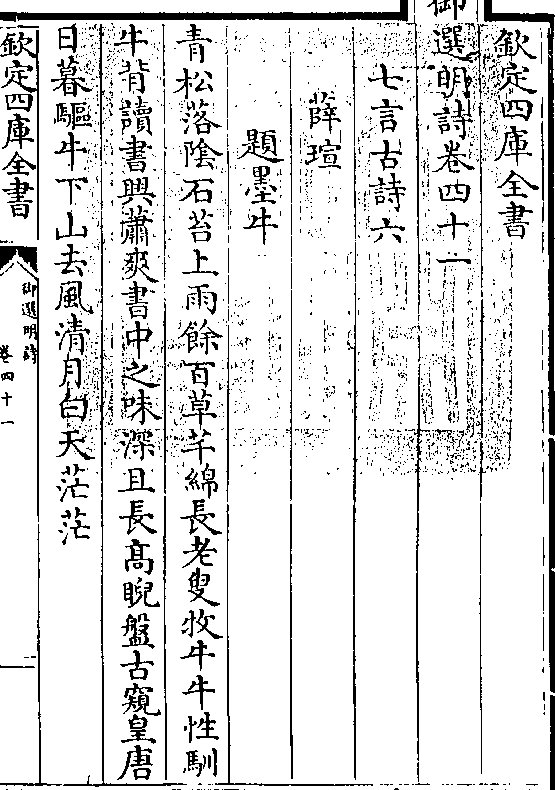 欽定四庫全書
御選明詩卷四十一
七言古詩六
薛瑄
題墨牛
青松落陰石苔上雨餘百草芊綿長老叟牧牛牛性馴
牛背讀書興蕭爽書中之味深且長高睨盤古窺皇唐
日暮驅牛下山去風清月白天茫茫
欽定四庫全書
御選明詩
卷四十一
一